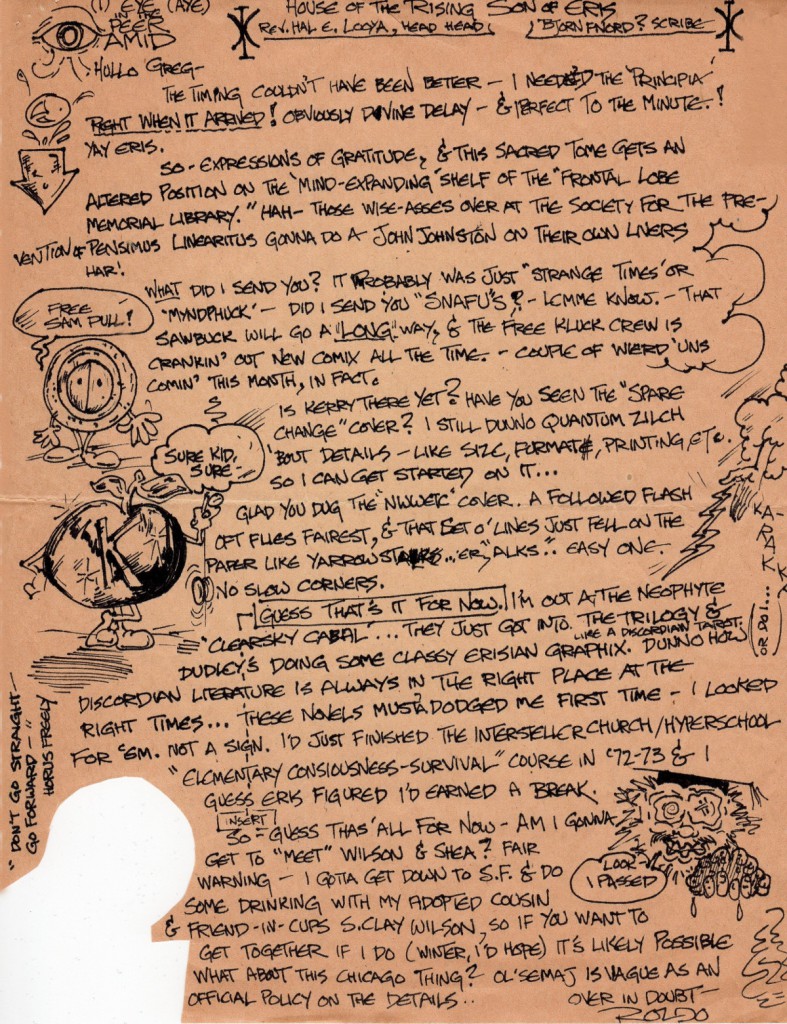 (I) EYE (AYE)
IN THE
PEER
AMID
HOUSE OF THE RISING SON OF ERIS
REV. HAL E. LOOYA, HEAD HEAD;
"BJORN FNORD? SCRIBE
HOLLO GREG-
THE TIMING COULDN'T HAVE BEEN BETTER - I NEEDED THE 'PRINCIPIA'
RIGHT WHEN IT ARRIVED! OBVIOUSLY DIVINE DELAY - & PERFECT TO THE MINUTE.!
YAY ERIS.
SO - EXPRESSIONS OF GRATITUDE, & THIS SACRED TOME GETS AN
ALTERED POSITION ON THE "MIND-EXPANDING" SHELF OF THE "FRONTAL LOBE
MEMORIAL LIBRARY." HAH - THOSE WISE-ASSES OVER AT THE SOCIETY FOR THE PRE-
VENTION OF PENSIMUS LINEARITUS GONNA DO A JOHN JOHNSTON ON THEIR OWN LIVERS
HAR!
WHAT DID I SEND YOU? IT PROBABLY WAS JUST "STRANGE TIMES' OR
'MYNDPHUCK' - DID I SEND YOU "SNAFU'S? - LEMME KNOW. - THAT
SAWBUCK WILL GO A "LONG" WAY, & THE FREE KLUCK CREW IS
CRANKIN' OUT NEW COMIX ALL THE TIME. - COUPLE OF WIERD 'UNS
COMIN' THIS MONTH, IN FACT.
FREE
SAM PULL!
IS KERRY THERE YET? HAVE YOU SEEN THE "SPARE
CHANGE" COVER? I STILL DUNNO QUANTUM ZILCH
'BOUT DETAILS - LIKE SIZE, FORMAT$, PRINTING, ETC.
SO I CAN GET STARTED ON IT...
SURE KID,
SURE-
GLAD YOU DUG THE "NWWETC" COVER. A FOLLOWED FLASH
OFT FLIES FAIREST, & THAT SET O' LINES JUST FELL ON THE
PAPER LIKE YARROW STALKS... "ER, "ALKS". EASY ONE.
NO SLOW CORNERS.
K
KA-
RAK
K
(OR DO I...
GUESS THAT'S IT FOR NOW. I'M OUT AT THE NEOPHYTE
"CLEARSKY CABAL"... THEY JUST GOT INTO THE TRILOGY &
LIKE A DISCORDIAN TAROT.
DUDLEY'S DOING SOME CLASSY ERISIAN GRAPHIX. DUNNO HOW
DISCORDIAN LITERATURE IS ALWAYS IN THE RIGHT PLACE AT THE
RIGHT TIMES... THESE NOVELS MUSTA DODGED ME FIRST TIME - I LOOKED
FOR 'EM. NOT A SIGN. I'D JUST FINISHED THE INTERSTELLER CHURCH/HYPERSCHOOL
"ELEMENTARY CONSIOUSNESS-SURVIVAL" COURSE IN '72-73 & I
GUESS ERIS FIGURED I'D EARNED A BREAK.
INSERT
SO - GUESS THAS' ALL FOR NOW - AM I GONNA
GET TO "MEET" WILSON & SHEA? FAIR
WARNING - I GOTTA GET DOWN TO S.F. & DO
SOME DRINKING WITH MY ADOPTED COUSIN
& FRIEND-IN-CUPS S. CLAY WILSON, SO IF YOU WANT TO
GET TOGETHER IF I DO (WINTER, I'D HOPE) IT'S LIKELY POSSIBLE
WHAT ABOUT THIS CHICAGO THING? OL' SEMAJ IS VAGUE AS AN
OFFICIAL POLICY ON THE DETAILS..
OVER IN DOUBT-
ROLDO
LOOK-
I PASSED
"DON'T GO STRAIGHT-
GO FORWARD-"
HORUS FREELY